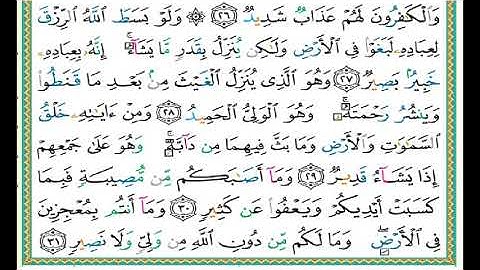 وَٱلْكَٰفِرُونَ لَهُمْ عَذَابٌ شَدِيدٌ ﴿٢٦﴾ ۞ وَلَوْ بَسَطَ ٱللَّهُ ٱلرِّزْقَ
لِعِبَادِهِۦ لَبَغَوْا۟ فِى ٱلْأَرْضِ وَلَٰكِن يُنَزِّلُ بِقَدَرٍ مَّا يَشَآءُ ۚ إِنَّهُۥ بِعِبَادِهِۦ
خَبِيرٌۢ بَصِيرٌ ﴿٢٧﴾ وَهُوَ ٱلَّذِى يُنَزِّلُ ٱلْغَيْثَ مِنۢ بَعْدِ مَا قَنَطُوا۟
وَيَنشُرُ رَحْمَتَهُۥ ۚ وَهُوَ ٱلْوَلِىُّ ٱلْحَمِيدُ ﴿٢٨﴾ وَمِنْ ءَايَٰتِهِۦ خَلْقُ
ٱلسَّمَٰوَٰتِ وَٱلْأَرْضِ وَمَا بَثَّ فِيهِمَا مِن دَآبَّةٍ ۚ وَهُوَ عَلَىٰ جَمْعِهِمْ
إِذَا يَشَآءُ قَدِيرٌ ﴿٢٩﴾ وَمَآ أَصَٰبَكُم مِّن مُّصِيبَةٍ فَبِمَا
كَسَبَتْ أَيْدِيكُمْ وَيَعْفُوا۟ عَن كَثِيرٍ ﴿٣٠﴾ وَمَآ أَنتُم بِمُعْجِزِينَ
فِى ٱلْأَرْضِ ۖ وَمَا لَكُم مِّن دُونِ ٱللَّهِ مِن وَلِىٍّ وَلَا نَصِيرٍ ﴿٣١﴾